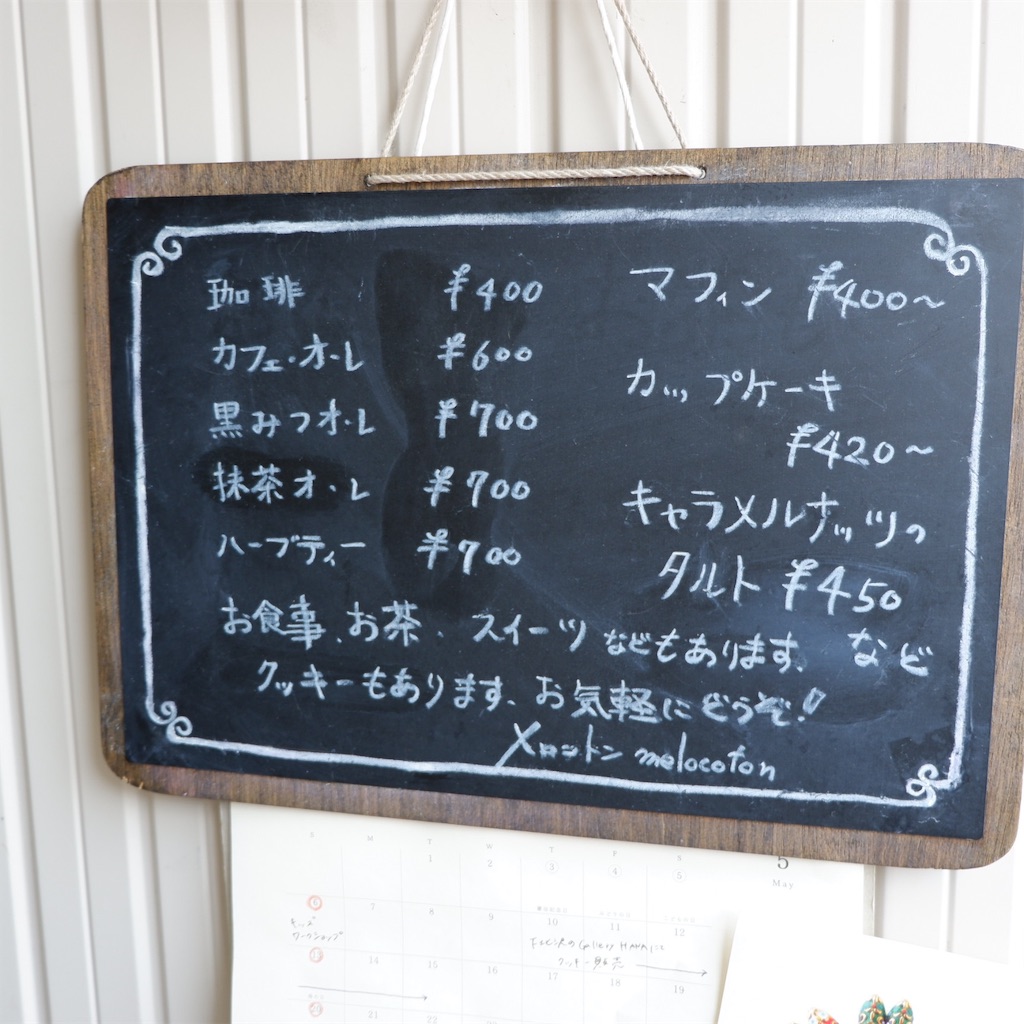 珈琲 ¥400
カフェ・オ・レ ¥600
黒みつオ・レ ¥700
抹茶オ・レ ¥700
ハーブティー ¥700
マフィン ¥400〜
カップケーキ
¥420〜
キャラメルナッツの
タルト ¥450
など
お食事、お茶、スイーツ などもあります、
クッキーもあります、お気軽にどうぞ!
メロコトン melocoton
5
May
S M T W T F S
1 2 3 4 5
6 7 8 9 10 11 12
キッズ
ワークショップ
クッキー販売
13 14 15 16 17 18 19
20 21 22